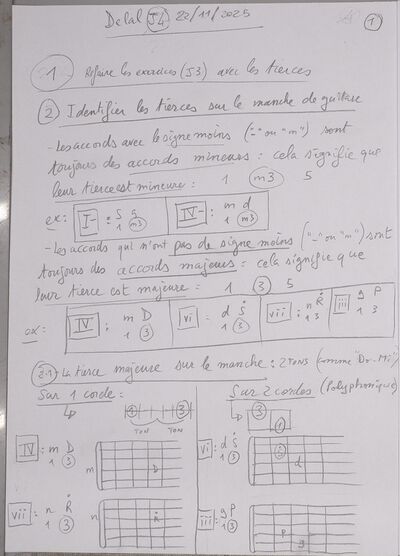 Delal J4 22/11/2025 1
1 Refaire les exercices (J3) avec les tierces
2 Identifier les tierces sur le manche de guitare
- Les accords avec le signe moins ("-" ou "m") sont
toujours des accords mineurs : cela signifie que
leur tierce est mineure : 1 m3 5
ex : I- : S g IV- : m d
1 m3 1 m3
- Les accords qui n'ont pas de signe moins ("-" ou "m") sont
toujours des accords majeurs : cela signifie que
leur tierce est majeure : 1 3 5
ex : IV : m D vi : d Ṡ vii : n Ṙ iii g P
1 3 1 3 1 3 1 3
2.1 La tierce majeure sur le manche : 2 tons (comme "Do-Mi")
Sur 1 corde : Sur 2 cordes (Polyphonique)
1 3 3
TON TON 1
IV : m D vi : d Ṡ
1 3 1 3
m D Ṡ d
vii : n Ṙ iii : g P
1 3 1 3
n Ṙ P g